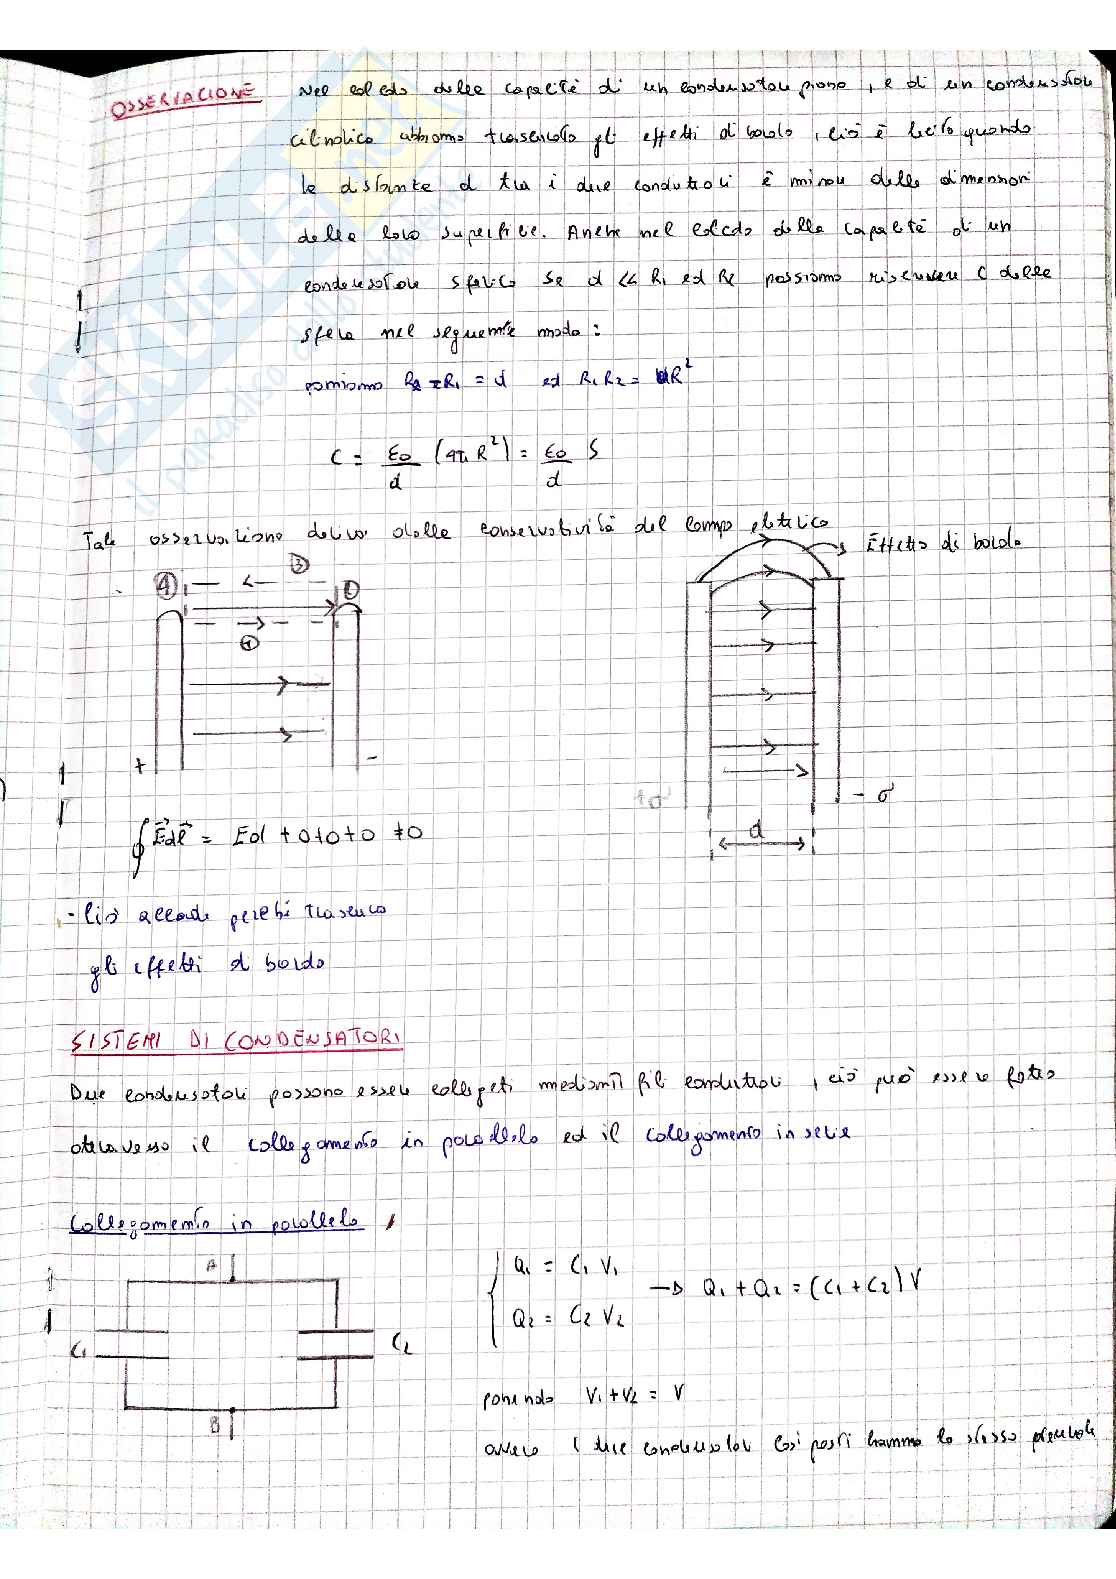 OSSERVAZIONE Nel calcolo della capacità di un condensatore piano, e di un condensatore
cilindrico abbiamo trascurato gli effetti di bordo, ciò è lecito quando
la distanza d tra i due conduttori è minore delle dimensioni
della loro superficie. Anche nel calcolo della capacità di un
condensatore sferico se d << R1 ed R2 possiamo riscrivere C della
sfera nel seguente modo:
poniamo R2 - R1 = d ed R1 R2 = R²
C = ε0/d (4π R²) = ε0/d S
Tale osservazione deriva dalla conservatività del campo elettrico
Effetto di bordo
④ ③ ②
①
+ -
+σ - σ
d
∮ E dl = Ed + 0+0+0 ≠0
- Ciò accade perchè trascuro
gli effetti di bordo
SISTEMI DI CONDENSATORI
Due condensatori possono essere collegati mediante fili conduttori, ciò può essere fatto
attraverso il collegamento in parallelo ed il collegamento in serie
Collegamento in parallelo
A
C1 C2
B
Q1 = C1 V1
Q2 = C2 V2
→ Q1 + Q2 = (C1 + C2) V
ponendo V1 + V2 = V
ovvero i due condensatori così posti hanno lo stesso